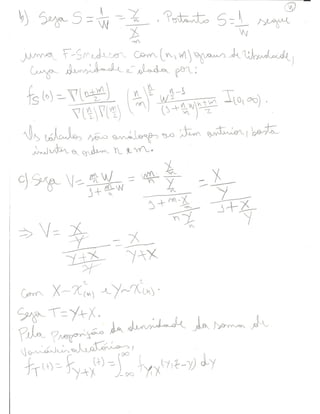 b) Seja S = 1/W = (Y/n)/(X/m). Portanto S = 1/W segue
uma F-Snedecor com (n, m) graus de liberdade,
cuja densidade é dada por:
f_S(s) = Γ((n+m)/2) / (Γ(n/2) Γ(m/2)) (n/m)^(n/2) I(0,∞).
Os cálculos são análogos ao item anterior, basta
inverter a ordem n e m.
c) Seja V = (m/n W)/(1 + m/n W) = (X/Y)/(1 + X/Y)
⇒ V = (X/Y)/((Y+X)/Y) = X/(Y+X)
com X ~ χ²(m) e Y ~ χ²(n).
Seja T = Y+X.
Pela Proposição da densidade da soma de
variáveis aleatórias,
f_T(t) = f_{Y+X}(t) = ∫_{-∞}^{∞} f_{Y,X}(y, t-y) dy